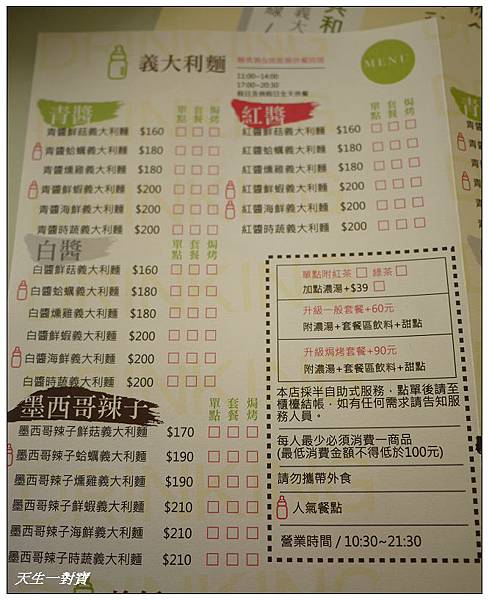 義大利麵
11:00~14:00
17:00~20:30
假日及例假日全天供餐
MENU
青醬 單點 套餐 焗烤
青醬鮮菇義大利麵 $160
青醬蛤蠣義大利麵 $180
青醬燻雞義大利麵 $180
青醬鮮蝦義大利麵 $200
青醬海鮮義大利麵 $200
青醬時蔬義大利麵 $200
白醬 單點 套餐 焗烤
白醬鮮菇義大利麵 $160
白醬蛤蠣義大利麵 $180
白醬燻雞義大利麵 $180
白醬鮮蝦義大利麵 $200
白醬海鮮義大利麵 $200
白醬時蔬義大利麵 $200
墨西哥辣子 單點 套餐 焗烤
墨西哥辣子鮮菇義大利麵 $170
墨西哥辣子蛤蠣義大利麵 $190
墨西哥辣子燻雞義大利麵 $190
墨西哥辣子鮮蝦義大利麵 $210
墨西哥辣子海鮮義大利麵 $210
墨西哥辣子時蔬義大利麵 $210
紅醬 單點 套餐 焗烤
紅醬鮮菇義大利麵 $160
紅醬蛤蠣義大利麵 $180
紅醬燻雞義大利麵 $180
紅醬鮮蝦義大利麵 $200
紅醬海鮮義大利麵 $200
紅醬時蔬義大利麵 $200
單點附紅茶 綠茶
加點濃湯+$39
升級一般套餐+60元
附濃湯+套餐區飲料+甜點
升級焗烤套餐+90元
附濃湯+套餐區飲料+甜點
本店採半自助式服務，點單後請至
櫃檯結帳，如有任何需求請告知服
務人員。
每人最少必須消費一商品
(最低消費金額不得低於100元)
請勿攜帶外食
人氣餐點
營業時間 / 10:30~21:30
天生一對寶